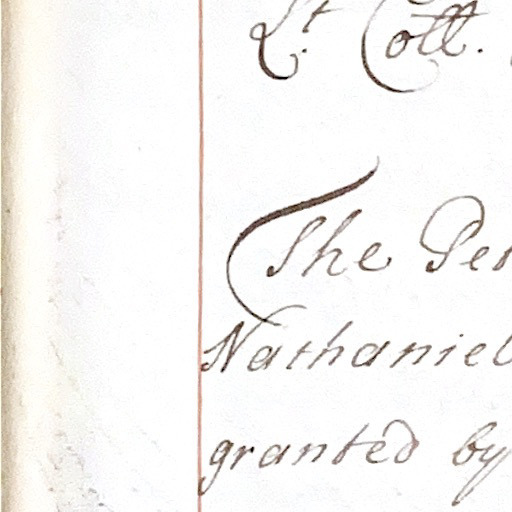 Lt. Coll.
The Pet
Nathaniel
granted by